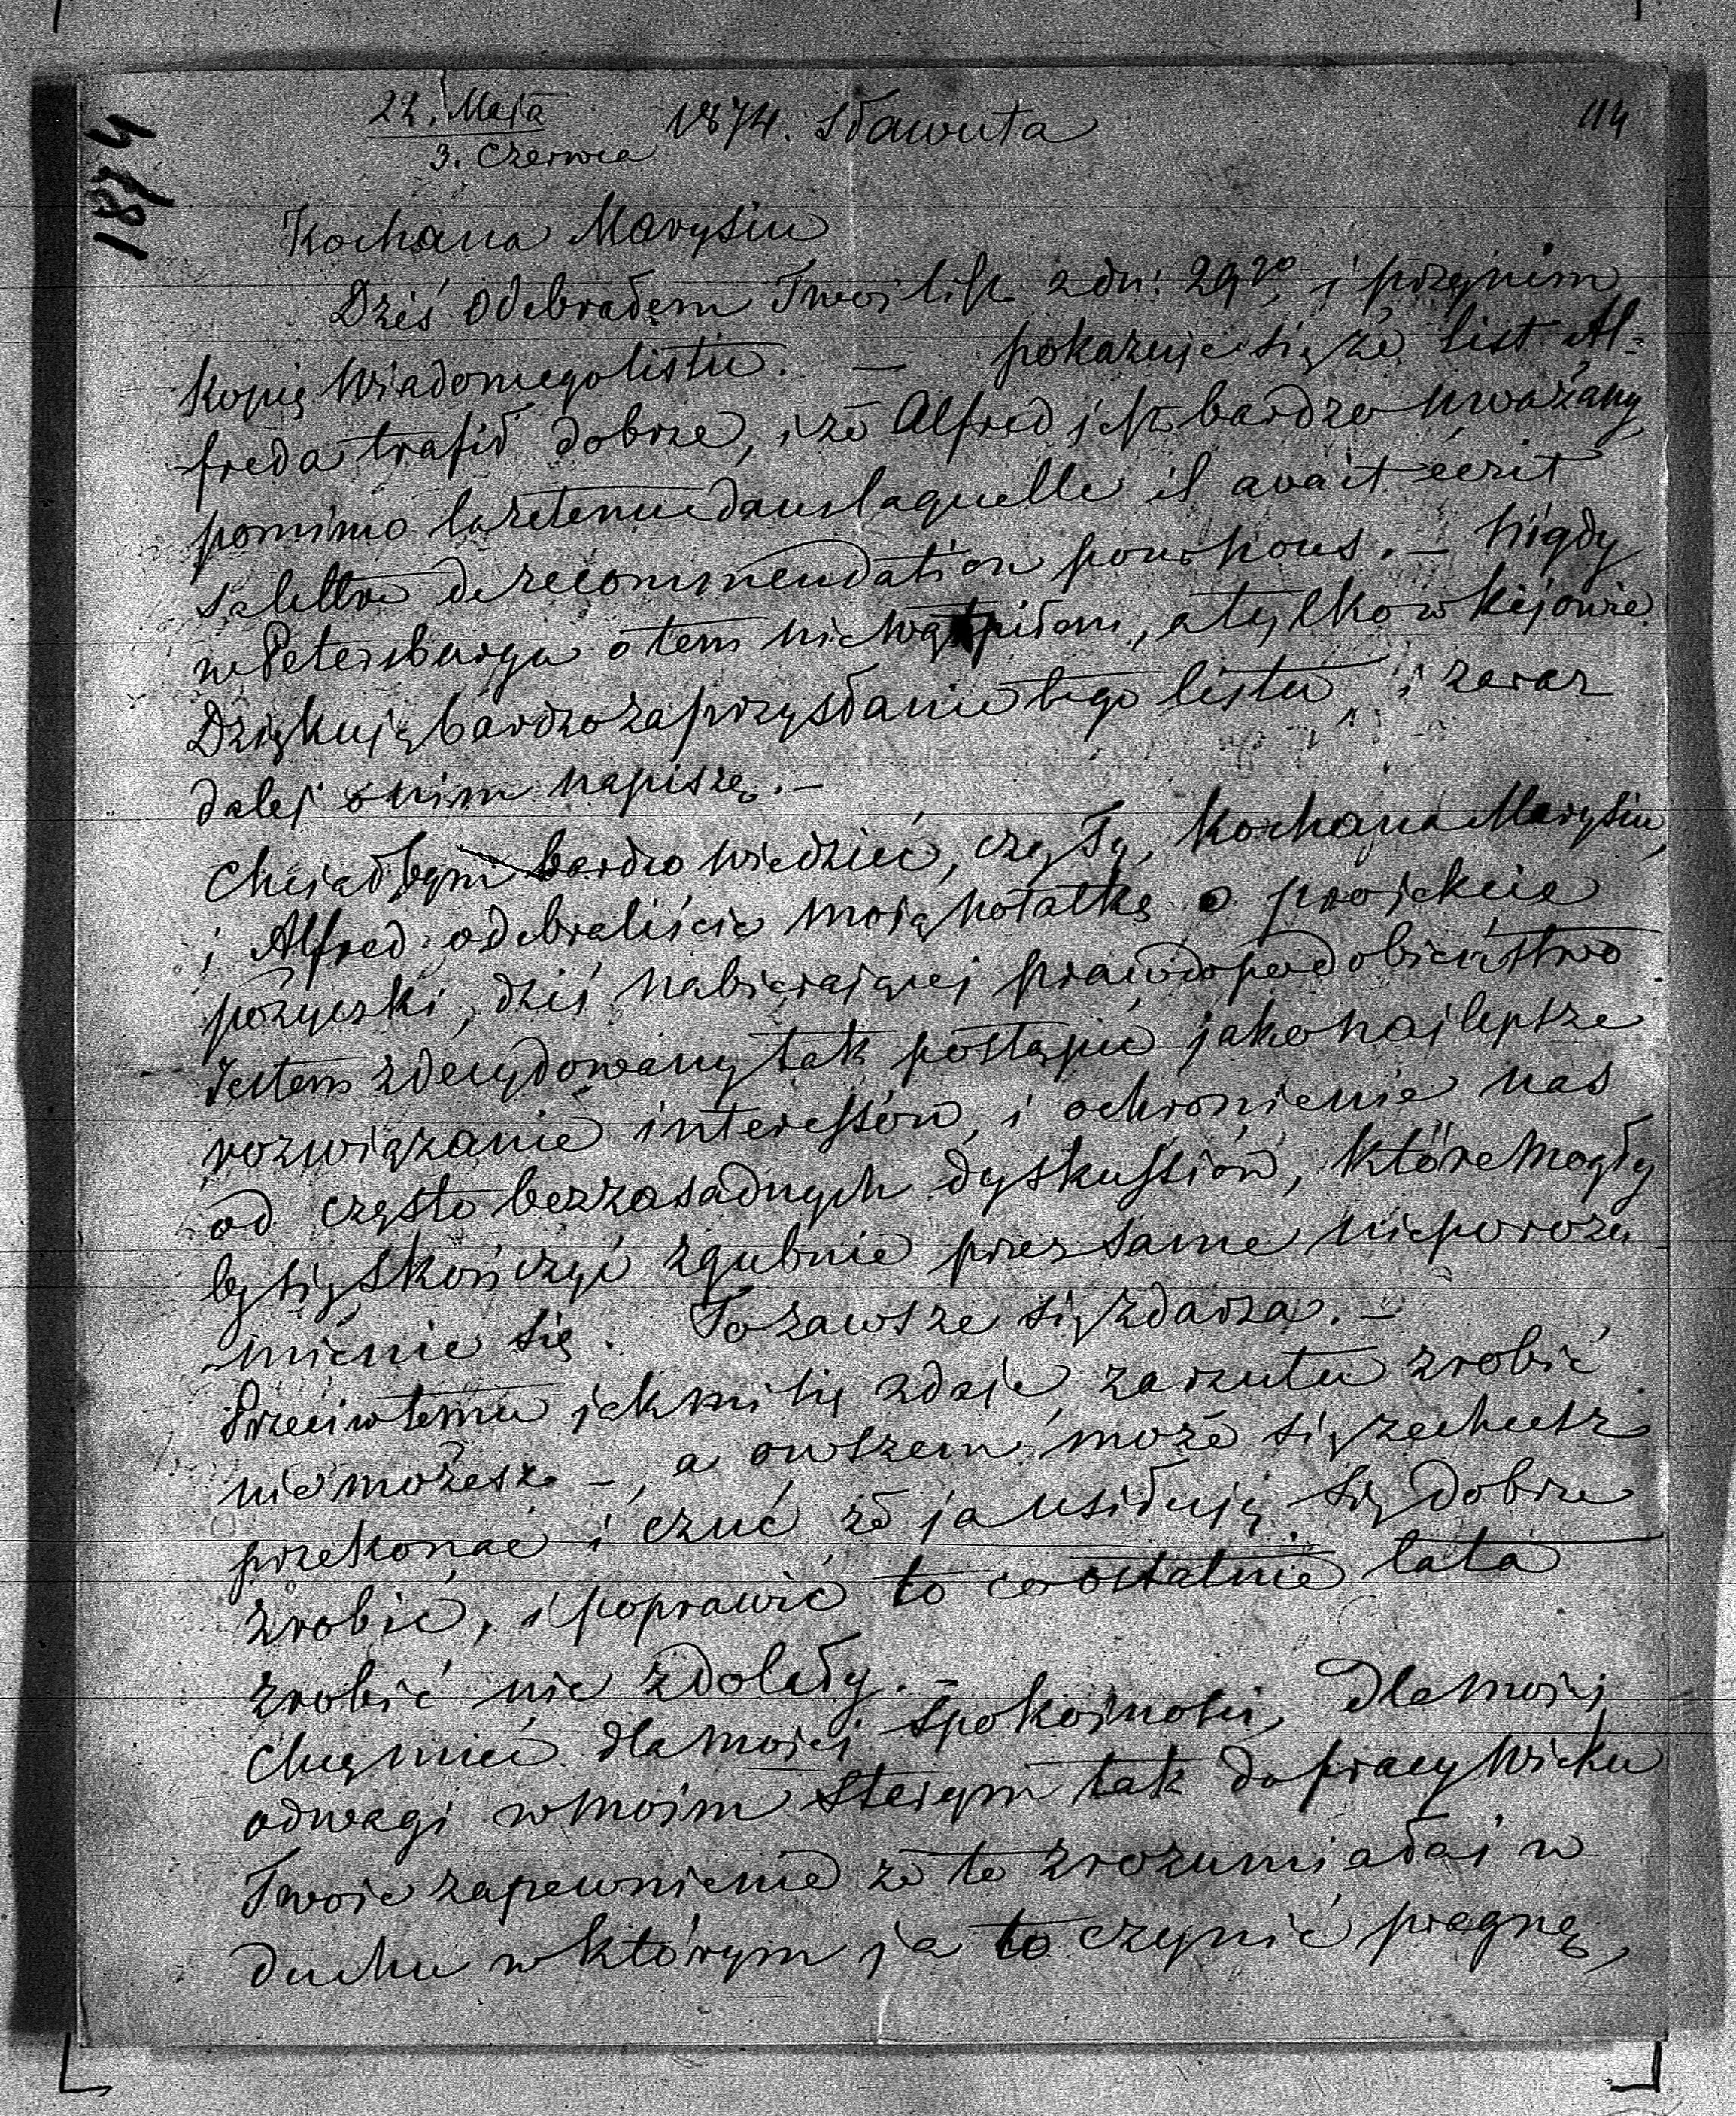 22. Maja 1874. Sławuta 114
3. Czerwca
1874
Kochana Marysiu
Dziś odebrałem Twoj list z dn: 29go, i przy nim
kopię wiadomego listu. — pokazuje się że list Al-
freda trafił dobrze, i że Alfred jest bardzo uważany
pomimo la retenue dans laquelle il avait écrit
sa lettre de recommendation pour nous. — Nigdy
w Petersburgu o tem nie wątpiłem, a tylko w Kijowie.
Dziękuję bardzo za przysłanie tego listu i zaraz
dalej o nim napiszę. —
Chciałbym bardzo wiedzieć, czy Ty, Kochana Marysiu,
i Alfred odebraliście moją notatkę o projekcie
pożyczki, dziś nabierającej prawdopodobieństwo
Jestem zdecydowany tak postąpić jako najlepsze
rozwiązanie interessów, i ochronienie nas
od często bezzasadnych dyskussiów, które mogły
by się skończyć zgubnie przez same nieporozu
mienie się. To zawsze się zdarza. —
Przeciw temu jak mi się zdaje, zarzutu zrobić
nie możesz —, a owszem może się zechcesz
przekonać i czuć że ja usiłuję się dobrze
zrobić, i poprawić to co ostatnie lata
zrobić nie zdołały.
Chcę mieć dla mojej spokojności, dla mojej
odwagi w moim starym tak do pracy wieku
Twoje zapewnienie że to zrozumiałaś w
duchu w którym ja to czynić pragnę,